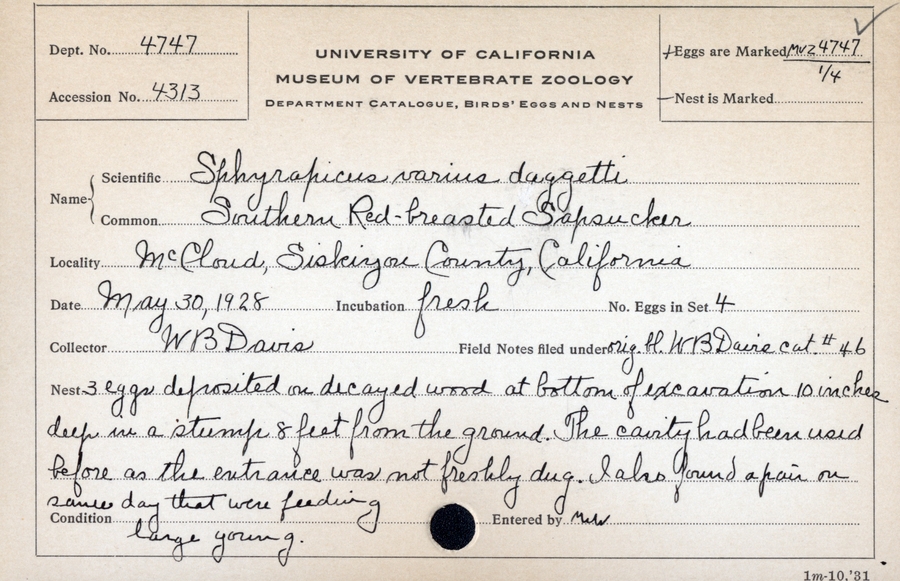 Dept. No. 4747
Accession No. 4313
UNIVERSITY OF CALIFORNIA
MUSEUM OF VERTEBRATE ZOOLOGY
DEPARTMENT CATALOGUE, BIRDS' EGGS AND NESTS
Eggs are Marked MVZ 4747
1/4
Nest is Marked
Name
Scientific Sphyrapicus varius daggetti
Common Southern Red-breasted Sapsucker
Locality McCloud, Siskiyou County, California
Date May 30, 1928 Incubation fresh No. Eggs in Set 4
Collector W B Davis Field Notes filed under orig. bl. W B Davis cat. # 46
Nest 3 eggs deposited on decayed wood at bottom of excavation 10 inches
deep in a stump 8 feet from the ground. The cavity had been used
before as the entrance was not freshly dug. I also found a pair on
same day that were feeding
Condition large young. Entered by
1m-10,'31